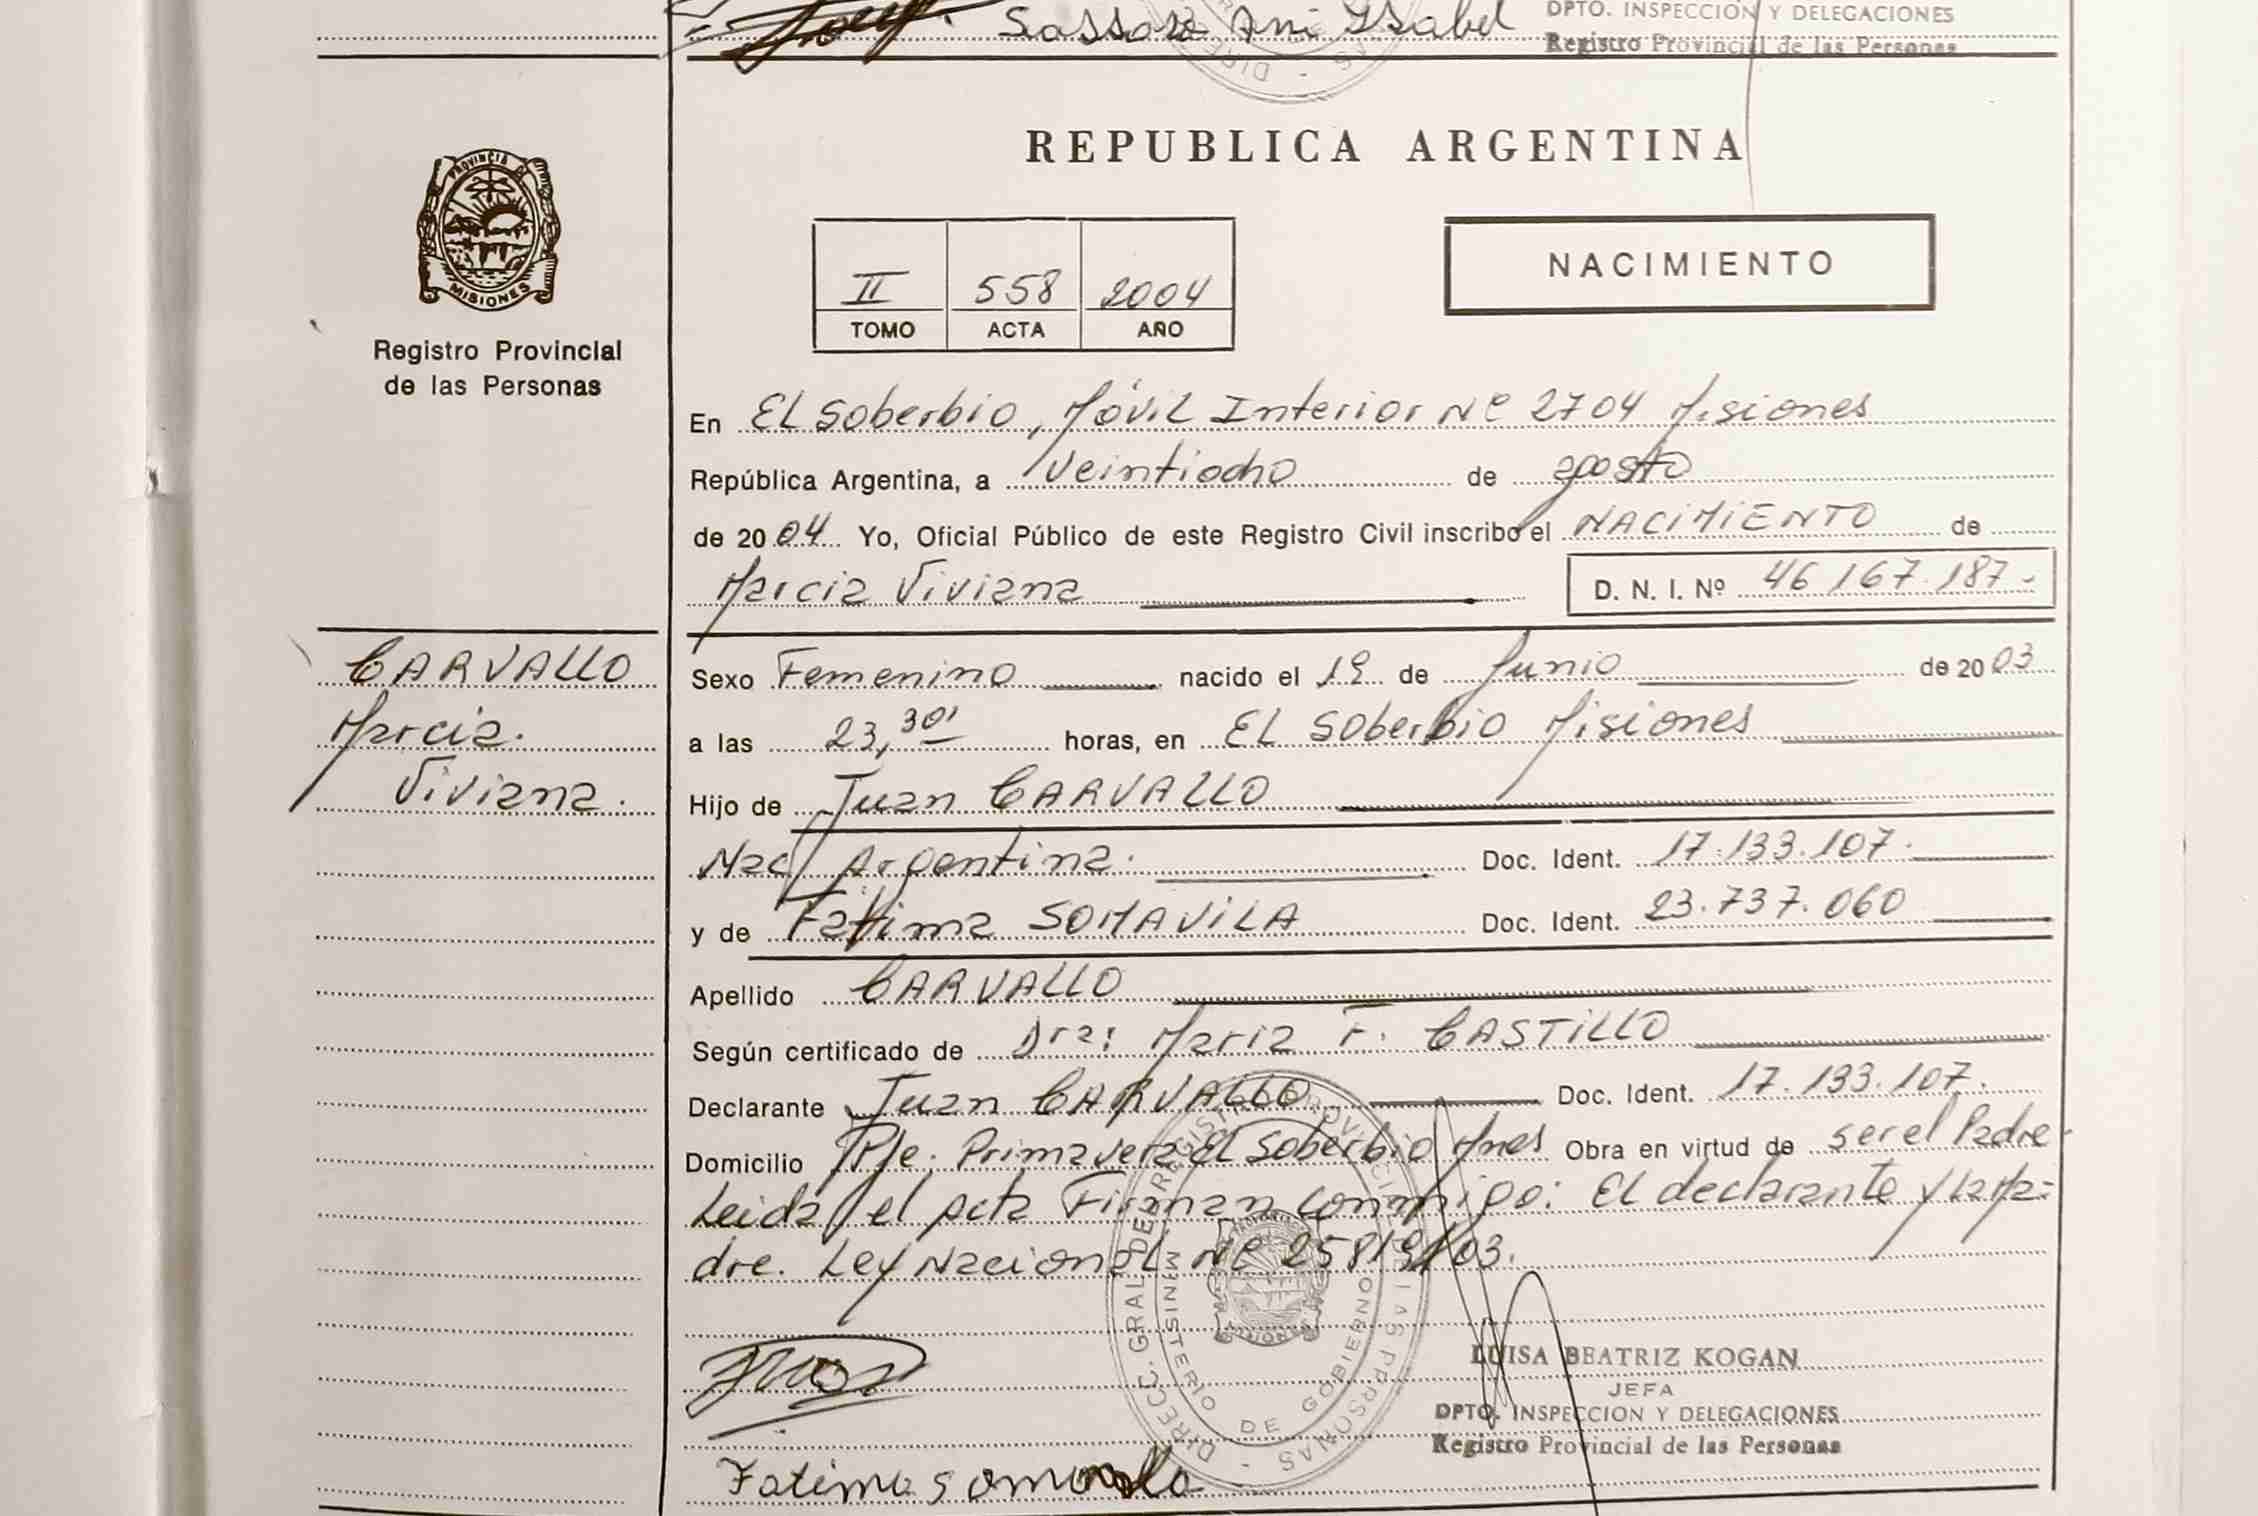 Sassose Ani Isabel
DPTO. INSPECCION Y DELEGACIONES
Registro Provincial de las Personas
PROVINCIA DE
MISIONES
Registro Provincial
de las Personas
REPUBLICA ARGENTINA
II 558 2004
TOMO ACTA AÑO
NACIMIENTO
En El Soberbio, Móvil Interior Nº 2704 Misiones
República Argentina, a Veintiocho de agosto
de 2004 Yo, Oficial Público de este Registro Civil inscribo el NACIMIENTO de
Marcia Viviana D. N. I. Nº 46.167.187.-
CARVALLO
Marcia.
Viviana.
Sexo Femenino nacido el 19 de Junio de 2003
a las 23,30' horas, en El Soberbio Misiones
Hijo de Juan CARVALLO
Nac/ Argentina. Doc. Ident. 17.133.107.
y de Fátima SOMAVILA Doc. Ident. 23.737.060
Apellido CARVALLO
Según certificado de Dra: Maria F. CASTILLO
Declarante Juan CARVALLO Doc. Ident. 17.133.107.
Domicilio Pje. Primavera El Soberbio Mnes Obra en virtud de ser el Padre
Leida el Acta Firman conmigo: El declarante y la Ma-
dre. Ley Nacional Nº 25819/03.
DIRECC. GRAL. DEL REGISTRO PROVINCIAL DE LAS PERSONAS
MINISTERIO DE GOBIERNO
LUISA BEATRIZ KOGAN
JEFA
DPTO. INSPECCION Y DELEGACIONES
Registro Provincial de las Personas
Fatima